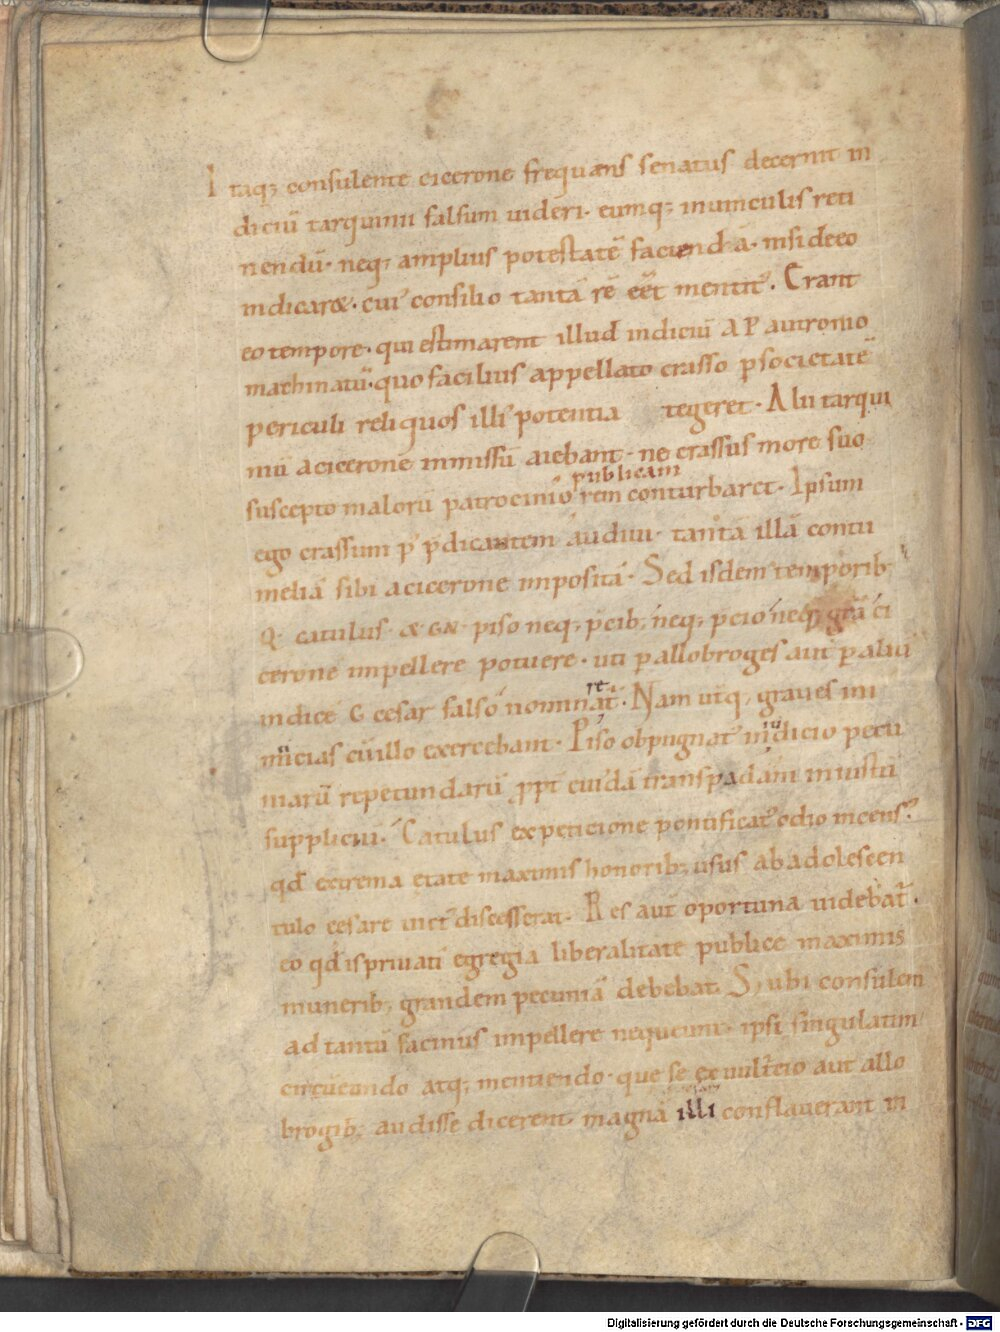 Itaq; consulente cicerone frequens senatus decernit in
diciū tarquinii falsum uideri· eumq; inuinculis reti
nendū· neq; amplius potestatē faciendā· nisideeo
indicaret· cui' consilio tantā rē eēt mentit'. Erant
eotempore· qui estimarent illud indiciū A P autronio
machinatū· quo facilius appellato crasso p societatē
periculi reliquos illi' potentia tegeret· Alii tarqui
niū acicerone inmissū aiebant· ne crassus more suo
publicam
suscepto malorū patrocinio rem conturbaret· Ipsum
ego crassum p' p̄dicantem audiui· tantā illā contu
meliā sibi acicerone impositā· Sed isdem temporib
Q· catulus· & GN· piso neq; p̄cib; neq; p̄cio neq; grā ci
cerone impellere potuere· uti p allobroges aut p aliū
re
indicē G cesar falso nominat̄· Nam utq; graues ini
micias cū illo exercebant· Piso obpugnat' iniudicio pecu
niarū repetundarū ppt̄ cuidā transpadani iniustū
suppliciū· Catulus expeticione pontificat' odio incens'·
qd̄ extrema etate maximis honorib; usus abadolescen
tulo cesare uict' discesserat· Res aut̄ oportuna uidebat̄·
eo qd̄ isprivati egregia liberalitate publice maximis
munerib; grandem pecuniā debebat· S; ubi consulem
ad tantū facinus impellere nequeunt· ipsi singulatim
circūeundo atq; mentiendo· que se ex uult̄cio aut allo
brogib; audisse dicerent· magnā illi conflauerant in
Digitalisierung gefördert durch die Deutsche Forschungsgemeinschaft - DFG